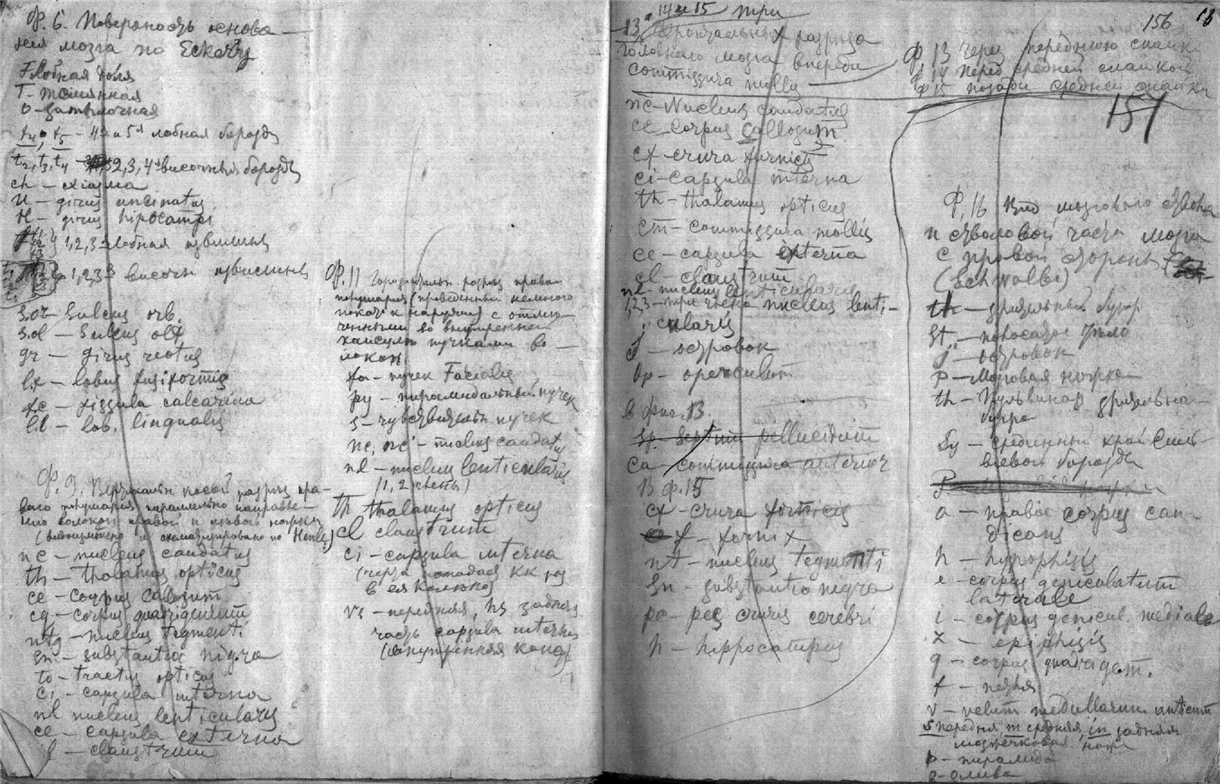 Ф. 6. Поверхность основа-
ния мозга по Еккеру
F лобная доля
T - темянная
O - затылочная
t4, t5 - 4я и 5я лобная борозда
t2, t3, t4 2, 3, 4я височныя борозды
ch - chiasma
U - girus uncinatus
H - girus hipocampi
1, 2, 3я лобная извилины
1, 2, 3я височн извилины
s.or - sulcus orb.
s.ol - sulcus olf
gr - girus rectus
lx - lobus fusiformis
fc - fissula calcarina
ll - lob. lingualis
Ф. 9. разрез пра-
ваго полушария параллельно направле-
нию волокон правой и ножки
nc - nucleus caudatus
th - thalamus opticus
cc - corpus callosum
cq - corpus quadrigeminum
ntg - nucleus tegmenti
sn - substantia nigra
to - tractus opticus
ci - capsula interna
nl nucleus lenticularis
ce - capsula externa
l - claustrum
Ф. 11 Горизонтальн разрез праваго
полушария (проведенный немного
кнаружи с отме-
ченными во внутренней
капсуле пучками во-
локон.
fa - пучек Facialis
py - пирамидальный пучек
s - чувствительн пучек
nc, nc' - nucleus caudat
nl - nucleus lenticularis
(1, 2 члены)
th thalamus opticus
cl claustrum
ci - capsula interna
(черта попадает
в ея колено)
vs - передняя, hs задняя
часть capsula interna
(внутренняя капс)
13, 14 и 15 три
Фронтальных разреза
головного мозга впереди
commissura mollis
nc - Nucleus caudatus
cc Corpus Callosum
cf - crura fornicis
ci - capsula interna
th - thalamus opticus
cm - commissura mollis
ce - capsula externa
cl - claustrum
nl - nucleus lenticularis
1, 2, 3 - три члена nucleus lenti-
cularis
J - островок
Op - operculum
В Фиг. 13
sp. septum pellucidum
ca - commissura anterior
В ф. 15
cf - crura fornicis
f - fornix
nt - nucleus tegmenti
sn - substantia nigra
pc - pes cruris cerebri
h - hippocampus
156 13
Ф. 13 через переднюю спайку
Ф 14 перед средней спайкой
Ф 15 позади средней спайки
157
Ф. 16 Вид мозгового ствола
и стволовой части мозга
с правой сторон
(Schwalbe)
th - зрительный бугор
st. - полосатое тело
J - островок
P - Мозговая ножка
th - Пульвинар зрительнаго
бугра
Sy - срединный край Силь-
виевой борозды
a - правое corpus can-
dicans
h - hypophisis
e - corpus geniculatum
laterale
i - corpus genicul mediale
z - epiphisis
q - corpus quadrigem.
f - петля
v - velum medullarum anticum
s передняя, m средняя, in задняя
мозжечковая нож
p - пирамида
o - олива